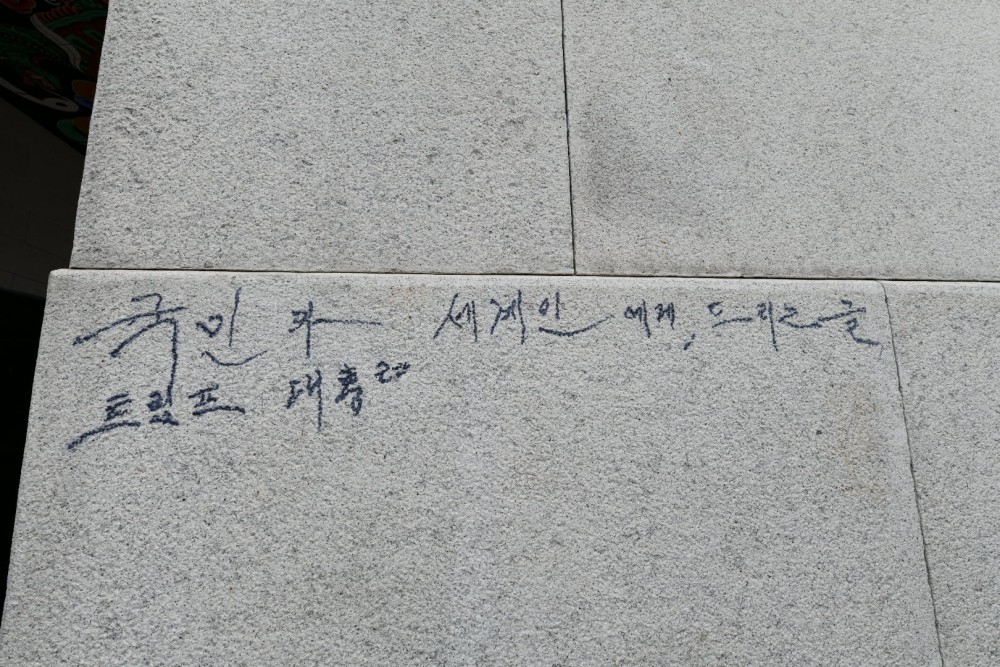 국민과 세계인에게 드리는 글
트럼프 대통령